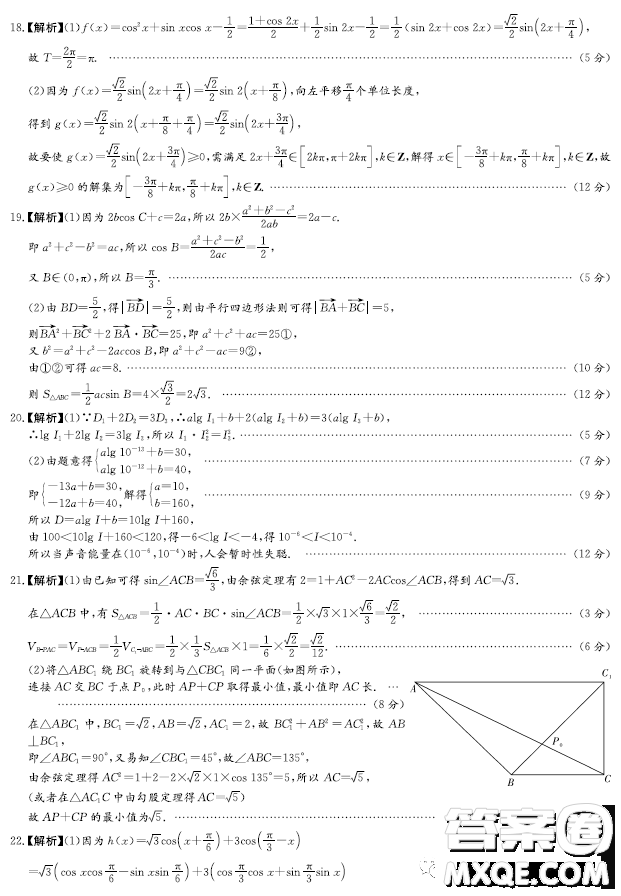 18.【解析】(1)f(x)=cos²x+sin xcos x-1/2=(1+cos 2x)/2+1/2 sin 2x-1/2=1/2(sin 2x+cos 2x)=√2/2 sin(2x+π/4),
故 T=2π/2=π. ……(5 分)
(2)因为 f(x)=√2/2 sin(2x+π/4)=√2/2 sin 2(x+π/8),向左平移π/4个单位长度,
得到 g(x)=√2/2 sin 2(x+π/8+π/4)=√2/2 sin(2x+3π/4),
故要使 g(x)=√2/2 sin(2x+3π/4)≥0,需满足 2x+3π/4∈[2kπ,π+2kπ],k∈Z,解得 x∈[-3π/8+kπ,π/8+kπ],k∈Z,故
g(x)≥0 的解集为[-3π/8+kπ,π/8+kπ],k∈Z. ……(12 分)
19.【解析】(1)因为 2bcos C+c=2a,所以 2b×(a²+b²-c²)/2ab=2a-c.
即 a²+c²-b²=ac,所以 cos B=(a²+c²-b²)/2ac=1/2,
又 B∈(0,π),所以 B=π/3. ……(5 分)
(2)由 BD=5/2,得|BD→|=5/2,则由平行四边形法则可得|BA→+BC→|=5,
则BA→²+BC→²+2 BA→·BC→=25,即 a²+c²+ac=25①,
又 b²=a²+c²-2accos B,即 a²+c²-ac=9②,
由①②可得 ac=8. ……(10 分)
则 S△ABC=1/2 acsin B=4×√3/2=2√3. ……(12 分)
20.【解析】(1)∵D₁+2D₂=3D₃,∴alg I₁+b+2(alg I₂+b)=3(alg I₃+b),
∴lg I₁+2lg I₂=3lg I₃,所以 I₁·I₂²=I₃³. ……(5 分)
(2)由题意得{alg 10⁻¹³+b=30, alg 10⁻¹²+b=40, ……(7 分)
即{-13a+b=30, -12a+b=40, 解得{a=10, b=160, ……(9 分)
所以 D=alg I+b=10lg I+160,
由 100<10lg I+160<120,得-6<lg I<-4,得 10⁻⁶<I<10⁻⁴.
所以当声音能量在(10⁻⁶,10⁻⁴)时,人会暂时性失聪. ……(12 分)
21.【解析】(1)由已知可得 sin∠ACB=√6/3,由余弦定理有 2=1+AC²-2ACcos∠ACB,得到 AC=√3.
在△ACB 中,有 S△ACB=1/2·AC·BC·sin∠ACB=1/2×√3×1×√6/3=√2/2, ……(3 分)
V_B-PAC=V_P-ACB=1/2 V_C₁-ABC=1/2×1/3 S△ACB×1=1/6×√2/2=√2/12. ……(6 分)
(2)将△ABC₁ 绕 BC₁ 旋转到与△CBC₁ 同一平面(如图所示),
连接 AC 交 BC 于点 P₀,此时 AP+CP 取得最小值,最小值即 AC 长. …
……(8 分)
在△ABC₁ 中,BC₁=√2,AB=√2,AC₁=2,故 BC₁²+AB²=AC₁²,故 AB
⊥BC₁,
即∠ABC₁=90°,又易知∠CBC₁=45°,故∠ABC=135°,
由余弦定理得 AC²=1+2-2×√2×1×cos 135°=5,所以 AC=√5,
(或者在△AC₁C 中由勾股定理得AC=√5)
故 AP+CP 的最小值为√5. ……
A
C₁
P₀
B
C
22.【解析】(1)因为 h(x)=√3cos(x+π/6)+3cos(π/3-x)
=√3(cos xcos π/6-sin xsin π/6)+3(cos π/3 cos x+sin π/3 sin x)
答案圈
MXQE.COM